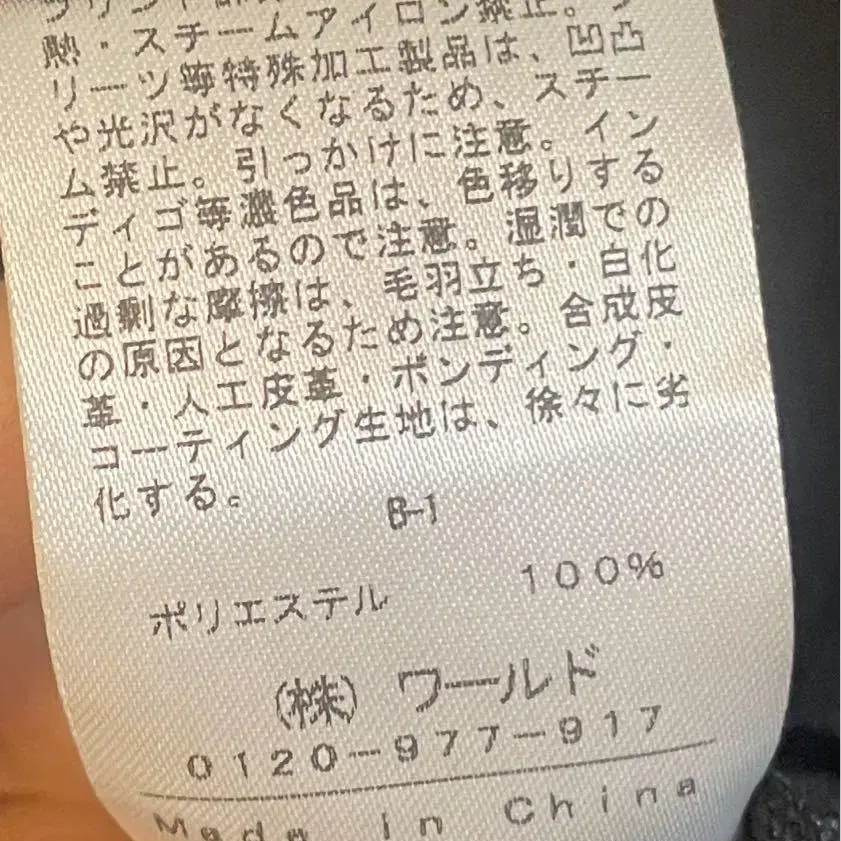 熱・スチームアイロン禁止。プ
リーツ等特殊加工製品は、凹凸
や光沢がなくなるため、スチー
ム禁止。引っかけに注意。イン
ディゴ等濃色品は、色移りする
ことがあるので注意。湿潤での
過剰な摩擦は、毛羽立ち・白化
の原因となるため注意。合成皮
革・人工皮革・ボンディング・
コーティング生地は、徐々に劣
化する。
B-1
ポリエステル 100%
(株) ワールド
0120-977-917
Made in China